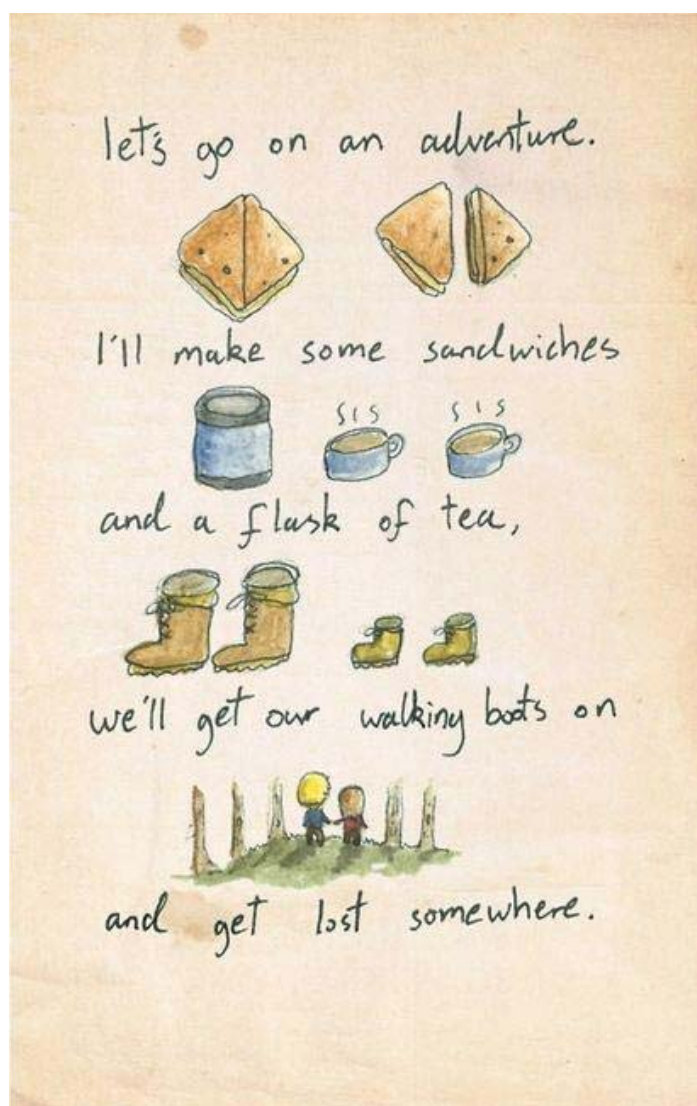 let's go on an adventure.
I'll make some sandwiches
and a flask of tea,
we'll get our walking boots on
and get lost somewhere.